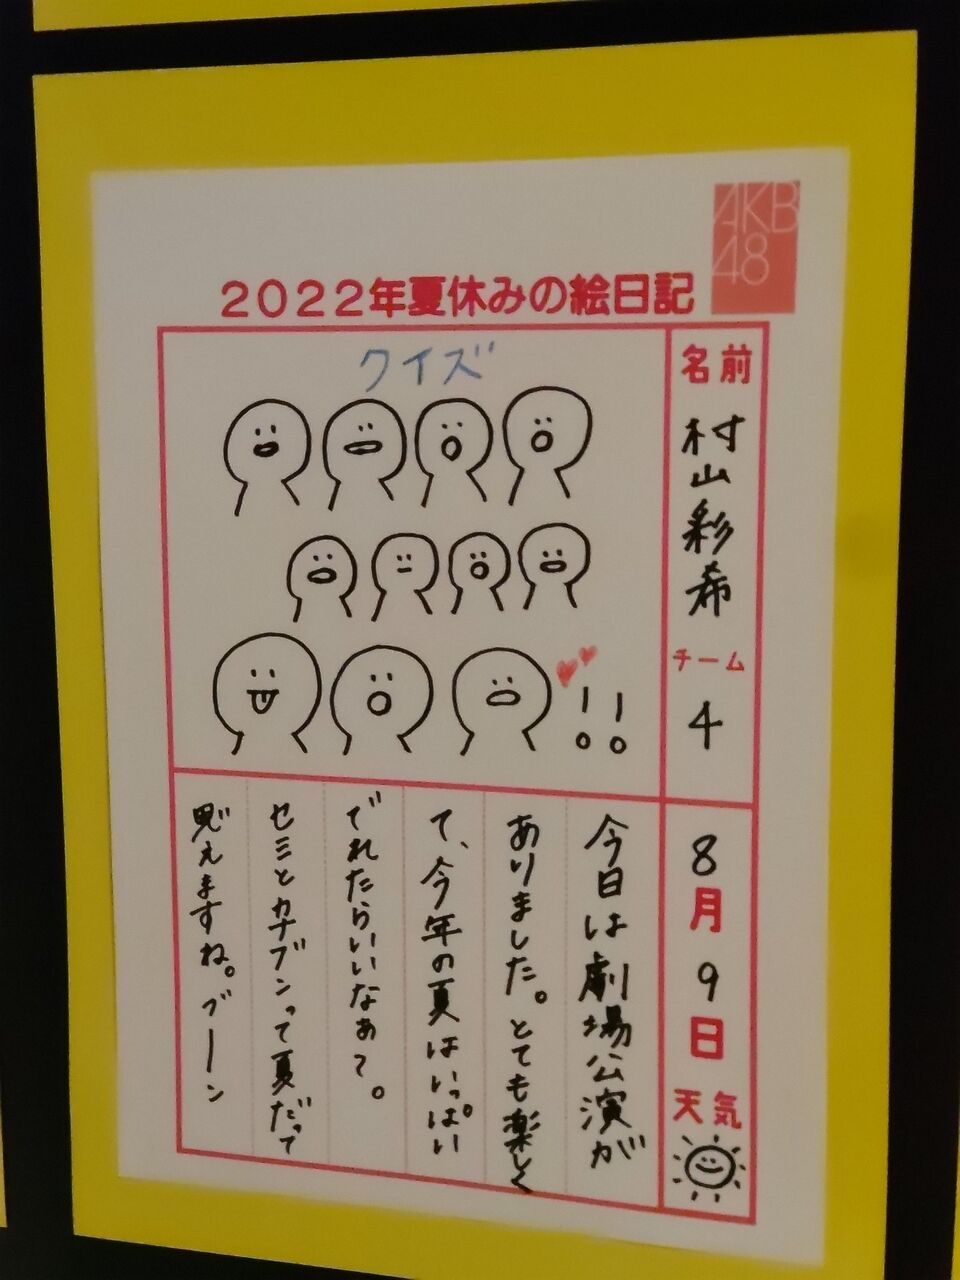 AKB
48
2022年夏休みの絵日記
クイズ
!!
名前
村山彩希
チーム
4
8月9日
天気
今日は劇場公演が
ありました。とても楽しく
て、今年の夏はいっぱい
でれたらいいなぁて。
セミとカナブンって夏だって
思えますね。ブーン